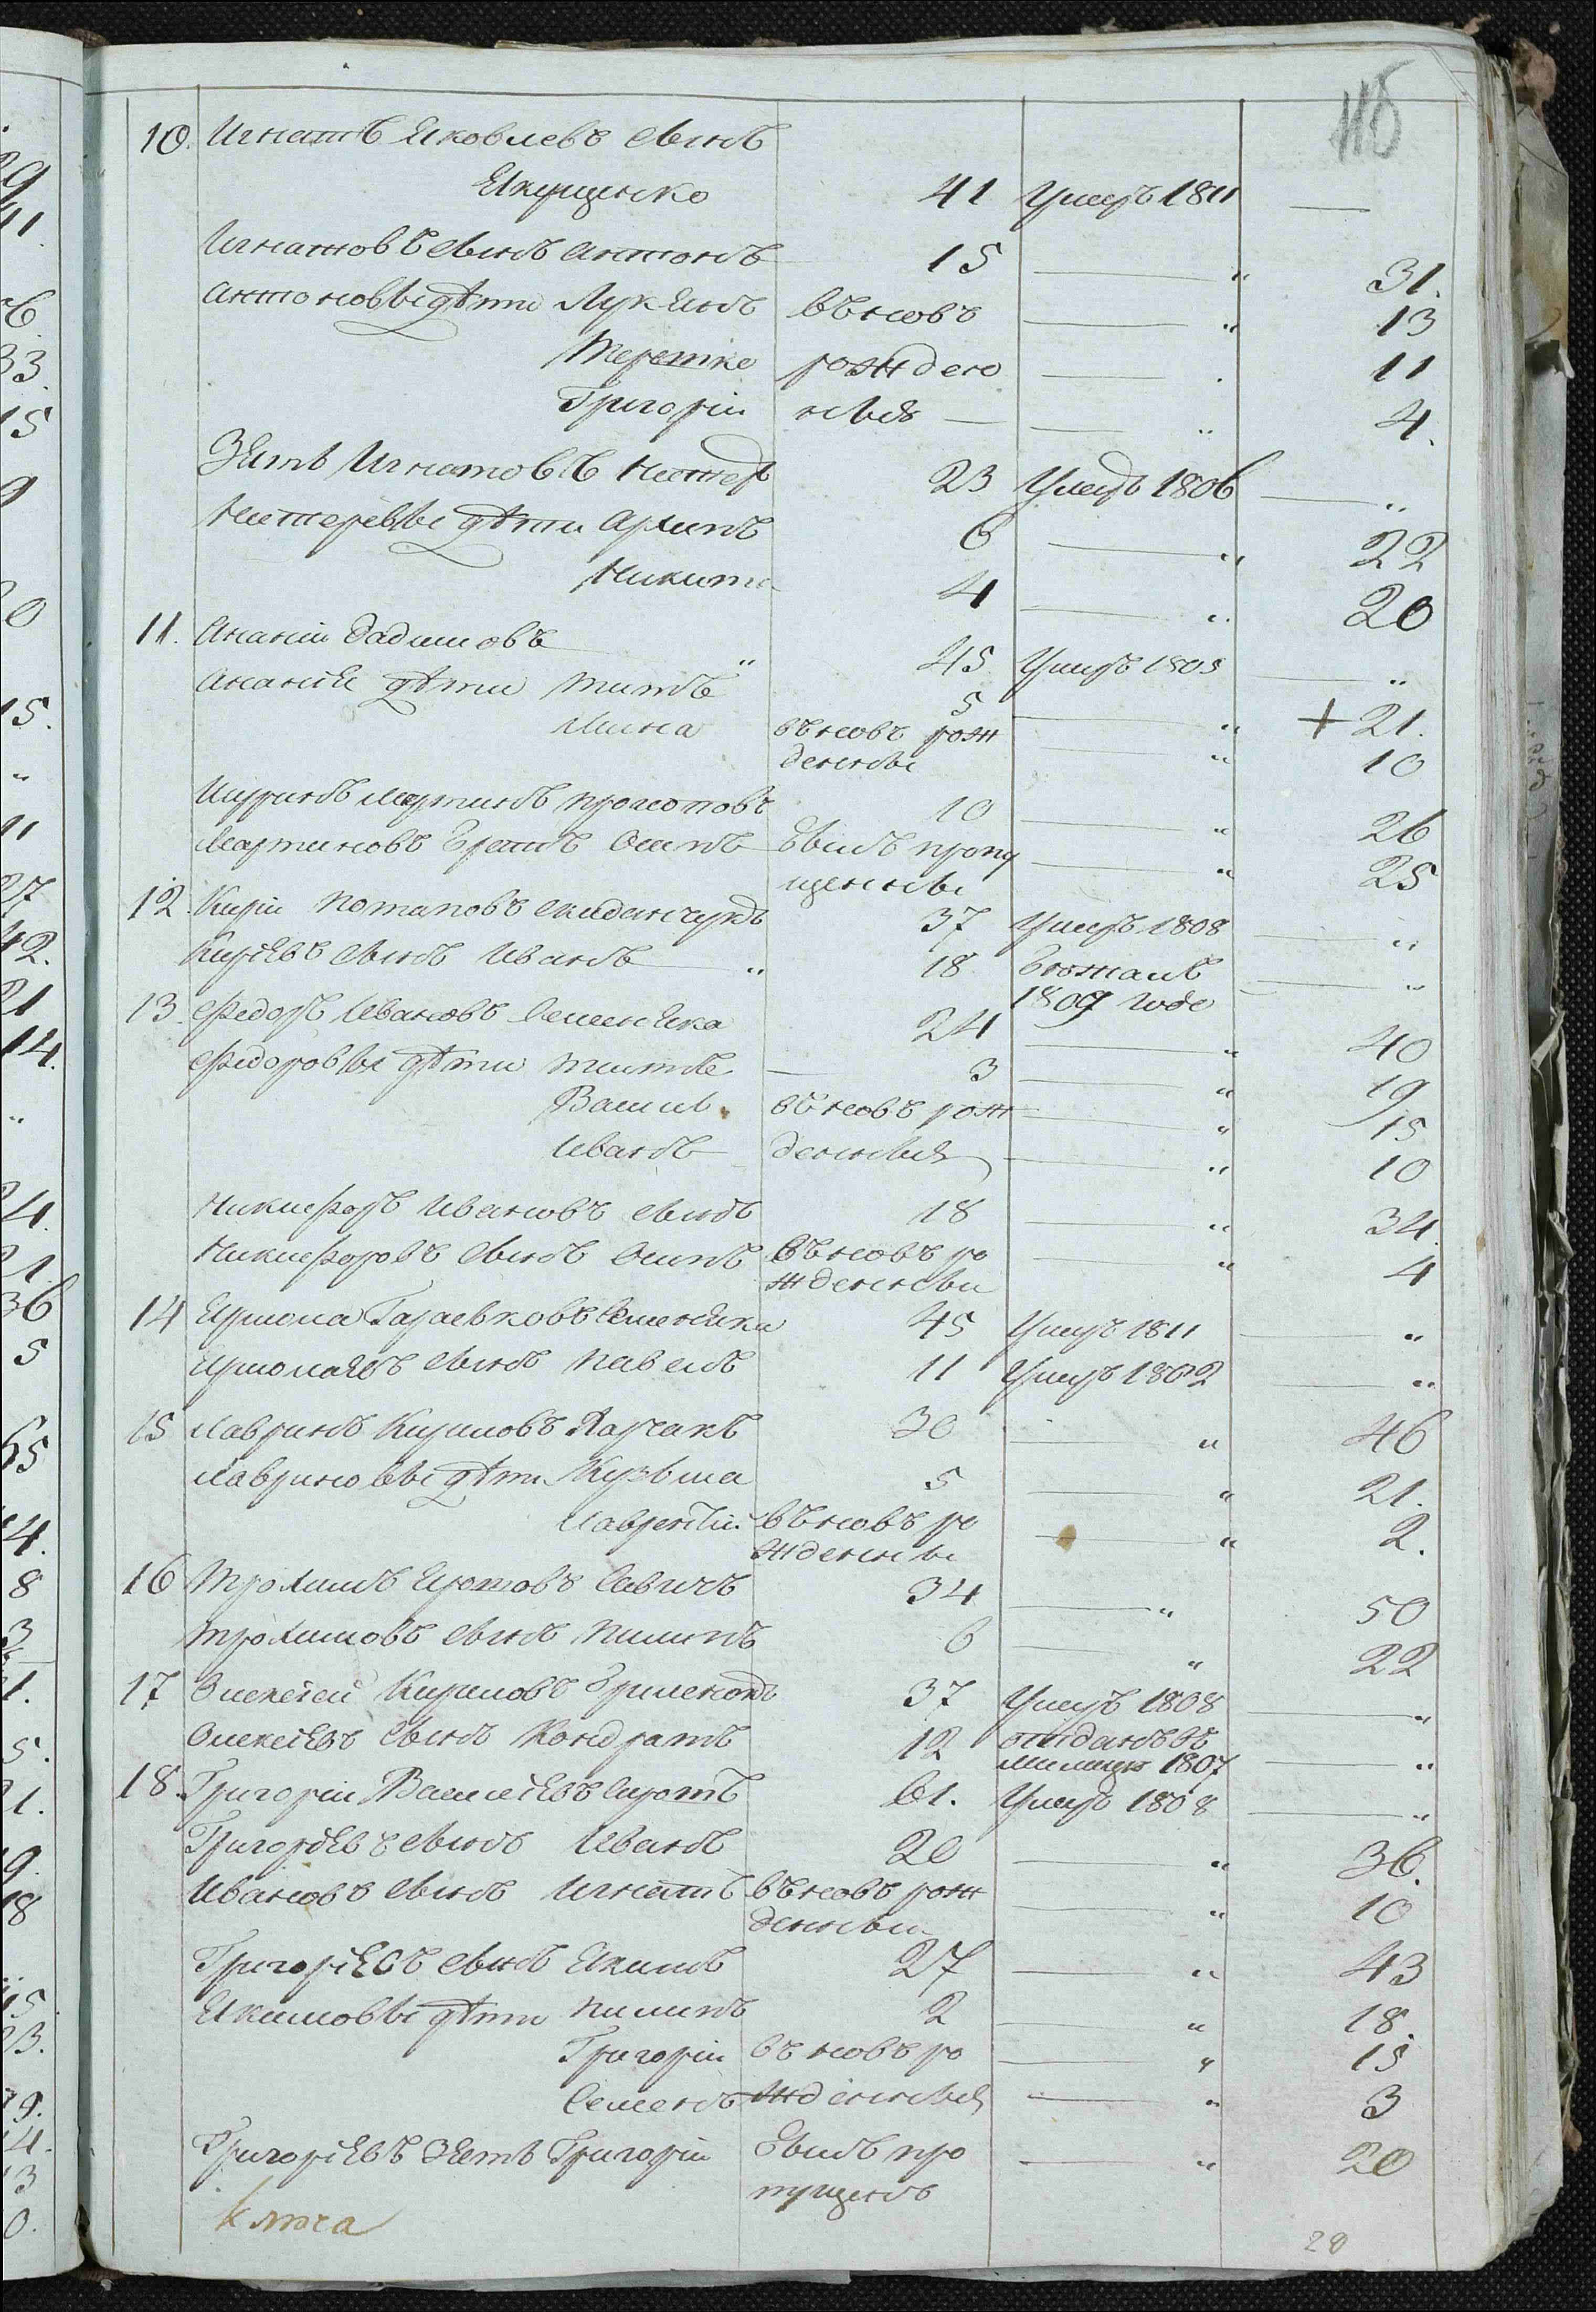 116
10. Игнатъ Яковлевъ сынъ
Якущенко 41 Умеръ 1811 —
Игнатовъ сынъ Антонъ 15 — " 31.
Антоновы дѣти Лукьянъ вѣновъ — " 13
Терешко рожден — . 11
Григорій ныя — — " 4.
Зять Игнатовъ Нестеръ 23 Умеръ 1806 — "
Нестеревы дѣти Архипъ 6 — " 22
Никита 4 — " 20
11. Ананій Вадимовъ " 45 Умеръ 1805 — "
Ананія дѣти Титъ 5 — " + 21.
Мина въновъ рож — " 10
денны
Мартинъ 10 — " 26
Мартиновъ братъ Осипъ былъ пропу — " 25
щенны
12. Кирій Потаповъ 37 Умеръ 1808 — "
Киріевъ сынъ Иванъ " 18 — "
1809 годе
13. Федоръ Ивановъ Семеняка 24 — " 40
Федоровы дѣти Титъ — 3 — " 19
Василь въновъ рож — " 15
Иванъ денныя — " 10
Никифоръ Ивановъ сынъ 18 — " 34.
Никифоровъ сынъ Осипъ въновъ ро — " 4
жденны
14 Ярмола Семеняка 45 Умеръ 1811 — "
Ярмолаевъ сынъ Павелъ 11 Умеръ 1802 — "
15 Лавринъ Кириловъ 30 — " 46
Лавриновы дѣти Кузьма 5 — " 21.
Лаврентій въновъ ро — " 2.
жденны
16 Трохимъ Савичъ 34 — " 50
Трохимовъ сынъ Пилипъ 6 — " 22
17 Олексѣй Кириловъ 37 Умеръ 1808 — "
Олексіевъ сынъ Кондратъ 12 отданъ въ
милицію 1807 — "
18. Григорій Василіевъ Сиротъ 61. Умеръ 1808 — "
Григоріевъ сынъ Иванъ 20 — " 36.
Ивановъ сынъ Игнатъ въновъ рож — " 10
денны
Григоріевъ сынъ Якимъ 27 — " 43
Якимовы дѣти Пилипъ 2 — " 18.
Григорій въновъ ро — " 15
Семенъ жденныя — " 3
Григоріевъ зять Григорій былъ про — " 20
пущенъ
Ключа
28